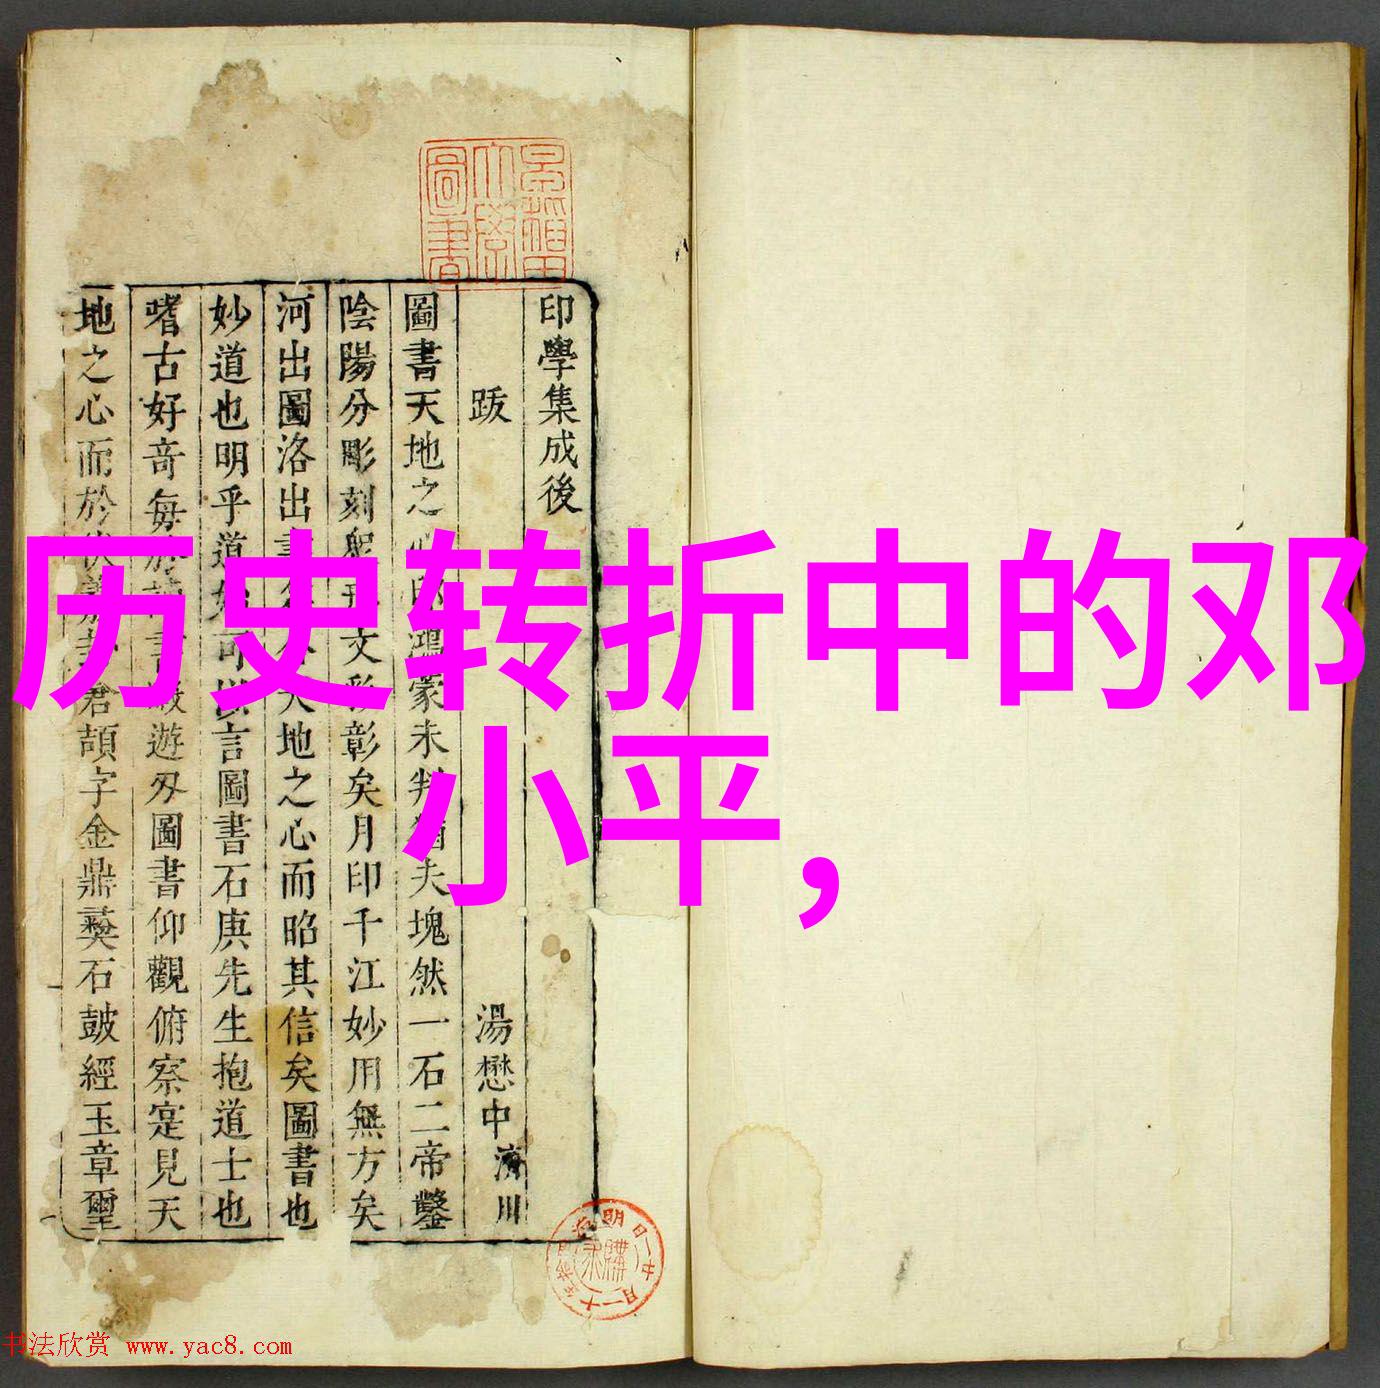 印學集成後
跋
湯懋中濟川
圖書天地之 鴻蒙未判猶夫塊然一石二帝鑿
陰陽分彫刻 文彩彰矣月印千江妙用無方矣
河出圖洛出書 天地之心而昭其信矣圖書也
妙道也明乎道 可以言圖書石庚先生抱道士也
嗜古好奇每 書 遊 圖書仰觀俯察寔見天
地之心而於 倉頡字金鼎彝石鼓經玉章璽
历史转折中的邓
小平,
书法欣赏 www.yac8.com